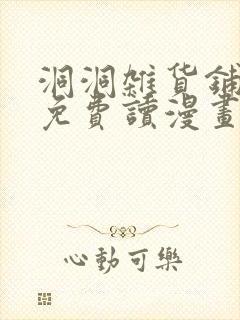 洞洞雜貨鋪
免費讀漫畫
心動可樂